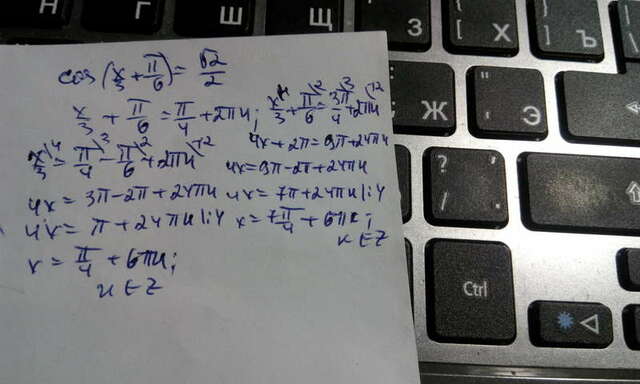 Ш
Щ
З
Х
[
Ъ
]
Ж
;
Э
"
?
/
Ctrl
cos(x/3 + π/6) = √2/2
x/3 + π/6 = π/4 + 2πк; x/3 + π/6 = 3π/4 + 2πк
x/3 = π/4 - π/6 + 2πк
4x + 2π = 9π + 24πк
4x = 9π - 2π + 24πк
4x = 3π - 2π + 24πк
4x = 7π + 24πк |:4
4x = π + 24πк |:4
x = 7π/4 + 6πк;
к ∈ Z
x = π/4 + 6πк;
к ∈ Z